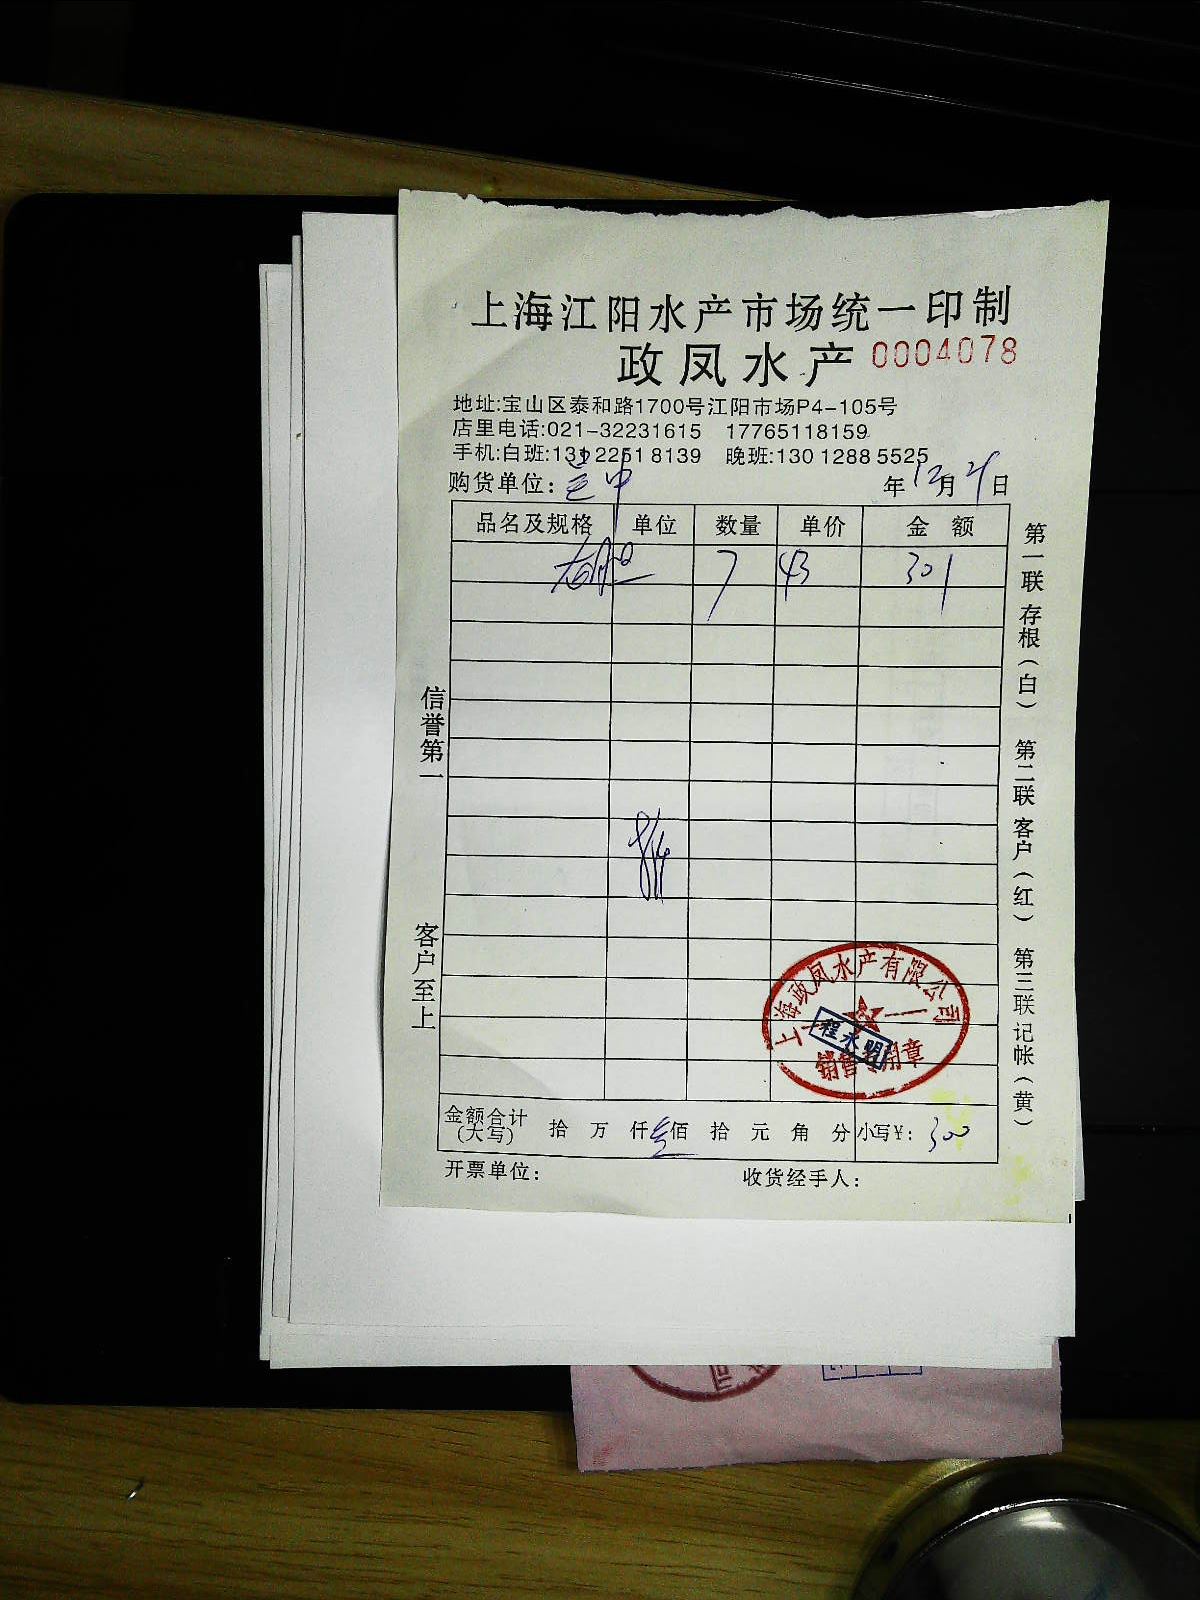 上海江阳水产市场统一印制
政凤水产 0004078
地址:宝山区泰和路1700号江阳市场P4-105号
店里电话:021-32231615 17765118159
手机:白班:131 2251 8139 晚班:130 1288 5525
购货单位: 年12月 日
品名及规格 单位 数量 单价 金额
7 43 301
信誉第一
客户至上
第一联存根(白) 第二联客户(红) 第三联记帐(黄)
上海政凤水产有限公司
程永明
销售专用章
金额合计(大写) 拾 万 仟 叁佰 拾 元 角 分 小写¥: 300
开票单位: 收货经手人: